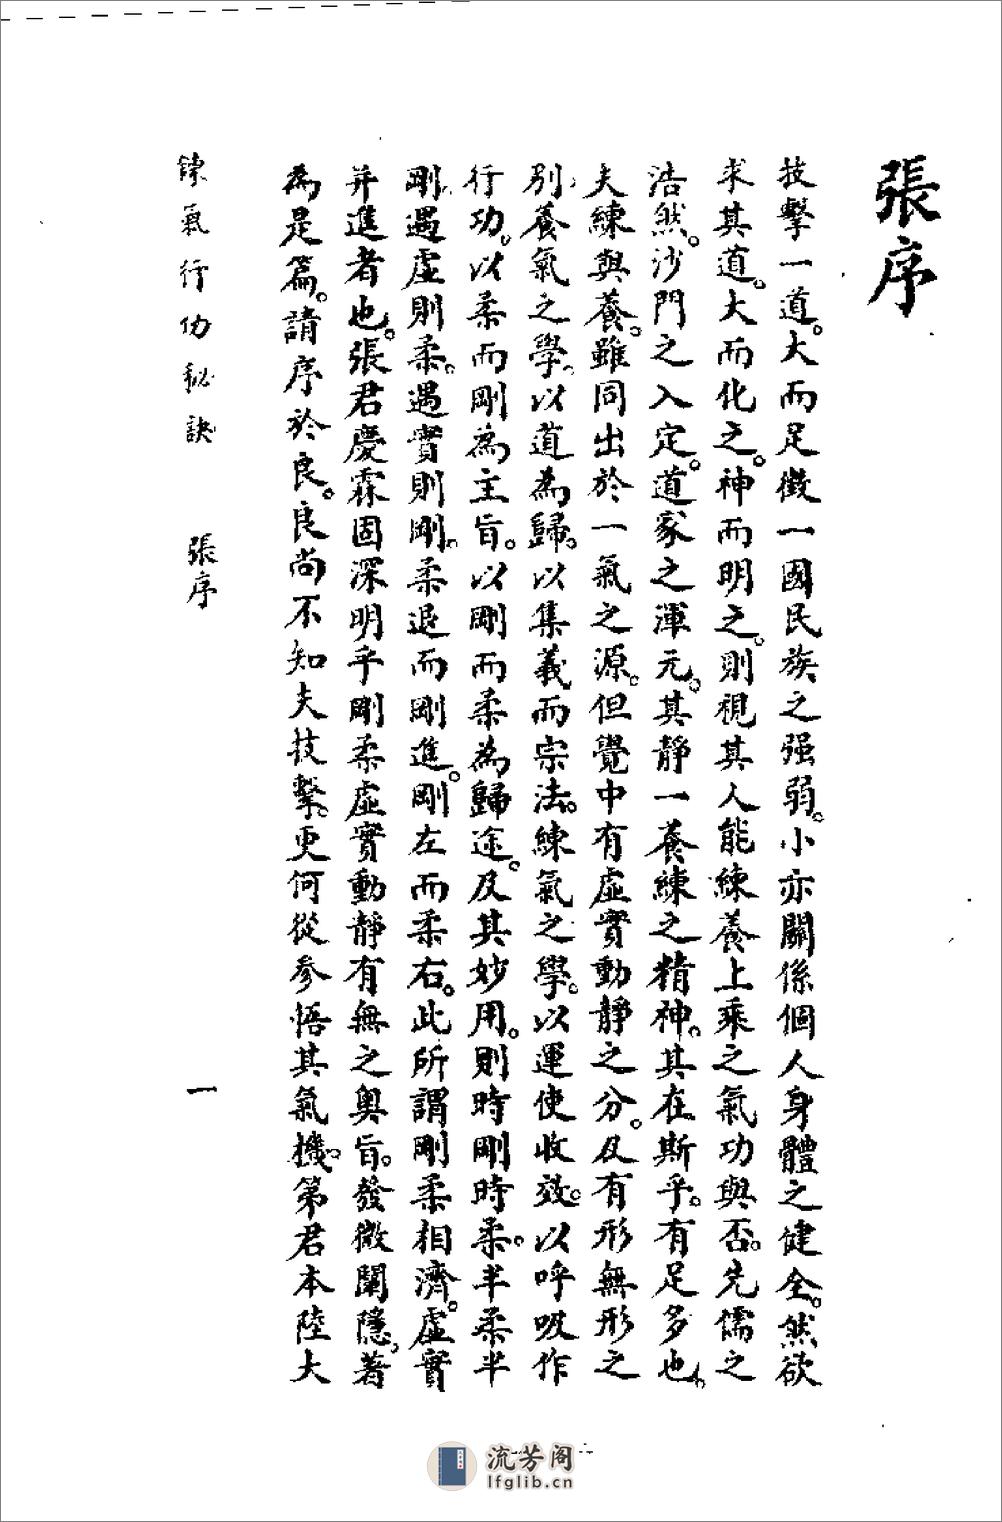 張序
技擊一道。大而足徵一國民族之强弱。小亦關係個人身體之健全。然欲
求其道。大而化之。神而明之。則視其人能練養上乘之氣功與否。先儒之
浩然。沙門之入定。道家之渾元。其靜一養練之精神。其在斯乎。有足多也。
夫練與養。雖同出於一氣之源。但覺中有虛實動靜之分。及有形無形之
別。養氣之學。以道為歸。以集義而宗法。練氣之學。以運使收效。以呼吸作
行功。以柔而剛為主旨。以剛而柔為歸途。及其妙用。則時剛時柔。半柔半
剛。遇虛則柔。遇實則剛。柔退而剛進。剛左而柔右。此所謂剛柔相濟。虛實
并進者也。張君慶霖固深明乎剛柔虛實動靜有無之奧旨。發微闡隱。著
為是篇。請序於良。良尚不知夫技擊。更何從參悟其氣機。第君本陸大
鍊氣行功秘訣 張序 一
流芳阁
lfglib.cn